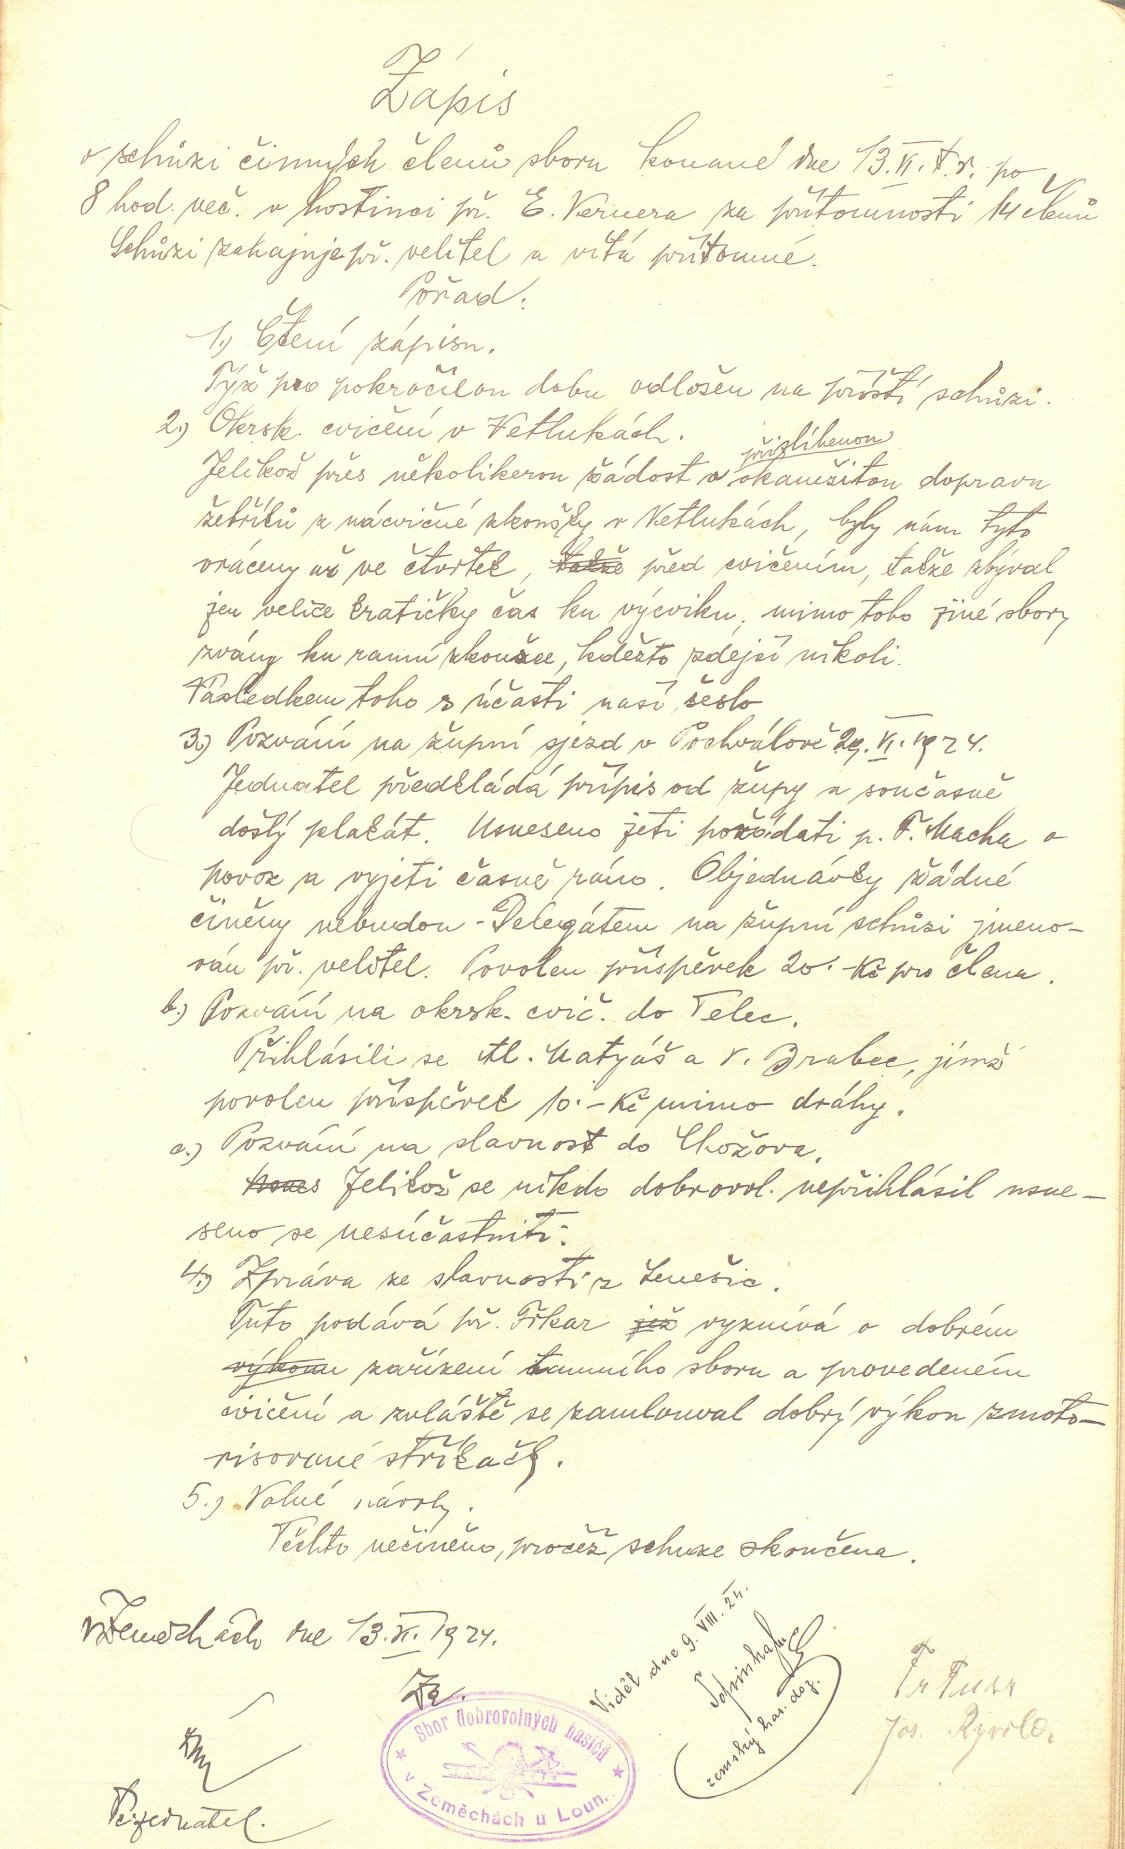 Zápis
o schůzi činných členů sboru konané dne 13.VI.t.r. po
8 hod. več. v hostinci př. E. Vernera za přítomnosti 14 členů
Schůzi zahajuje př. velitel a vítá přítomné.
Pořad:
1.) Čtení zápisu.
Týž pro pokročilou dobu odložen na příští schůzi.
2.) Okrsk. cvičení v Netlukách.
přislíbenou
Jelikož přes několikerou žádost a okamžitou dopravu
žebříků z nácvičné zkoušky v Netlukách, byly nám tyto
vráceny až ve čtvrtek, takže před cvičením, takže zbýval
jen velice kratičký čas ku výcviku, mimo toho jiné sbory
zvány ku ranní zkoušce, kdežto zdejší nikoli.
Následkem toho z účasti naší sešlo
3.) Pozvání na župní sjezd v Pochválově 29. VI. 1924.
Jednatel předkládá přípis od župy a současně
došlý plakát. Usneseno jeti požádati p. F. Macha o
povoz a vyjeti časně ráno. Objednávky žádné
činěny nebudou - Delegátem na župní schůzi jmeno-
ván př. velitel. Povolen příspěvek 20.- Kč pro člena.
b.) Pozvání na okrsk. cvič. do Telec.
Přihlásili se Al. Matyáš a V. Brabec, jimž
povolen příspěvek 10.- Kč mimo dráhy.
c.) Pozvání na slavnost do Chožova.
Usnes Jelikož se nikdo dobrovol. nepřihlásil usne-
seno se nesúčastniti.
4.) Zpráva ze slavnosti z Lenešic.
Tuto podává př. Frkar již vyznívá o dobrém
výkonu zařízení tamního sboru a provedeném
cvičení a zvláště se zamlouval dobrý výkon zmoto-
risované stříkačky.
5.) Volné návrhy.
Těchto nečiněno, pročež schuze skončena.
V Zeměchách dne 13.VI. 1924.
Za.
Sbor dobrovolných hasičů
v Zeměchách u Loun.
Viděl dne 9. VIII. 24.
zemský has. doz.
Jos.
jednatel.